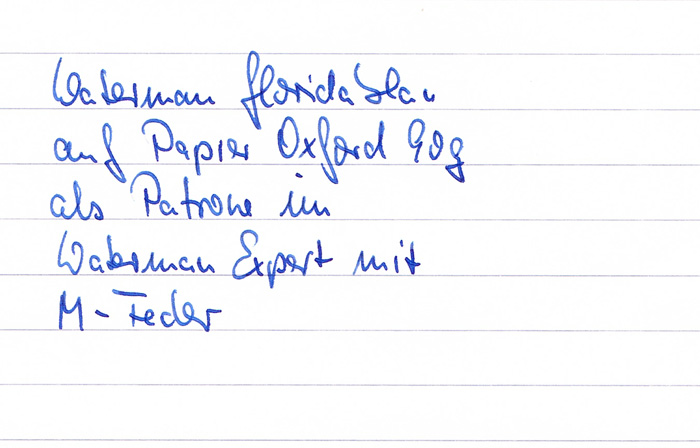 Waterman floridablau
auf Papier Oxford 90g
als Patrone im
Waterman Expert mit
M-Feder